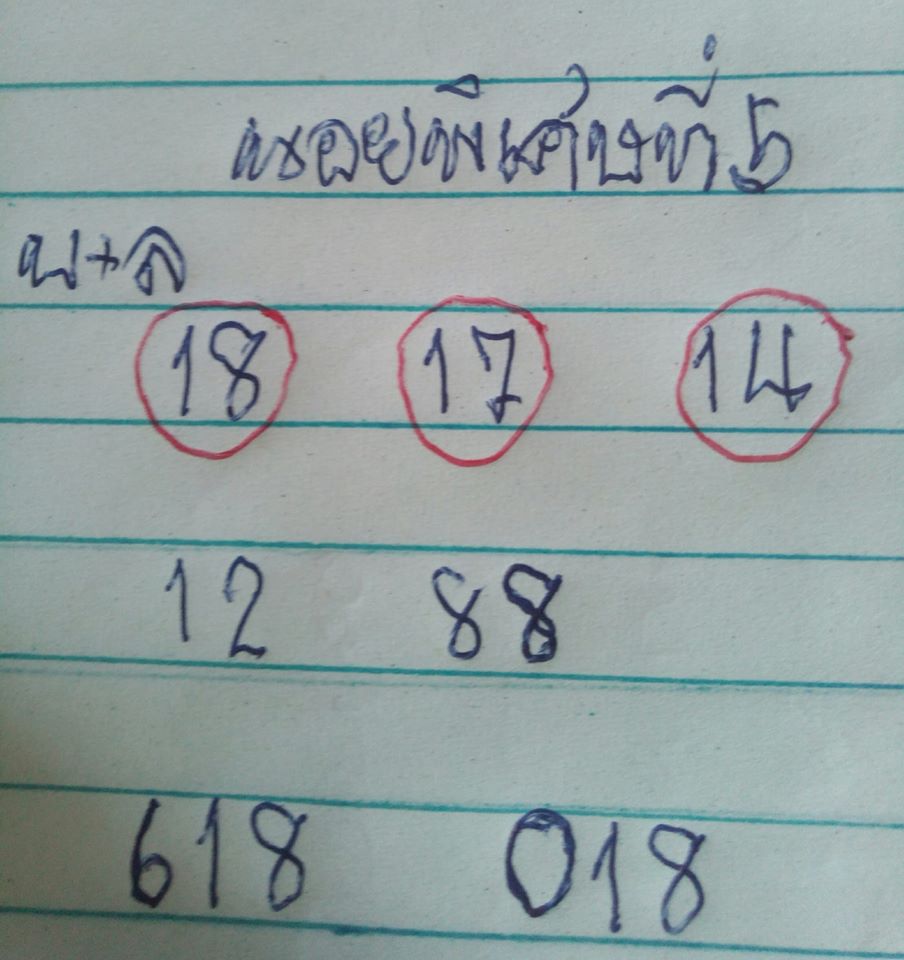 หอยพิเศษที่ 5
บ+ล
18 17 14
12 88
618 018